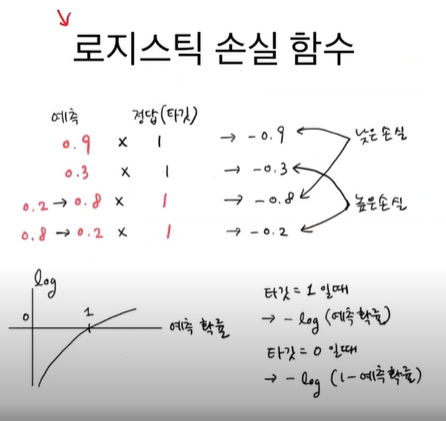 로지스틱 손실 함수
예측 정답(타깃)
0.9 × 1 → -0.9 낮은손실
0.3 × 1 → -0.3
0.2 → 0.8 × 1 → -0.8 높은손실
0.8 → 0.2 × 1 → -0.2
log
0 1 예측 확률
타깃 = 1 일때
→ -log (예측확률)
타깃 = 0 일때
→ -log (1-예측확률)